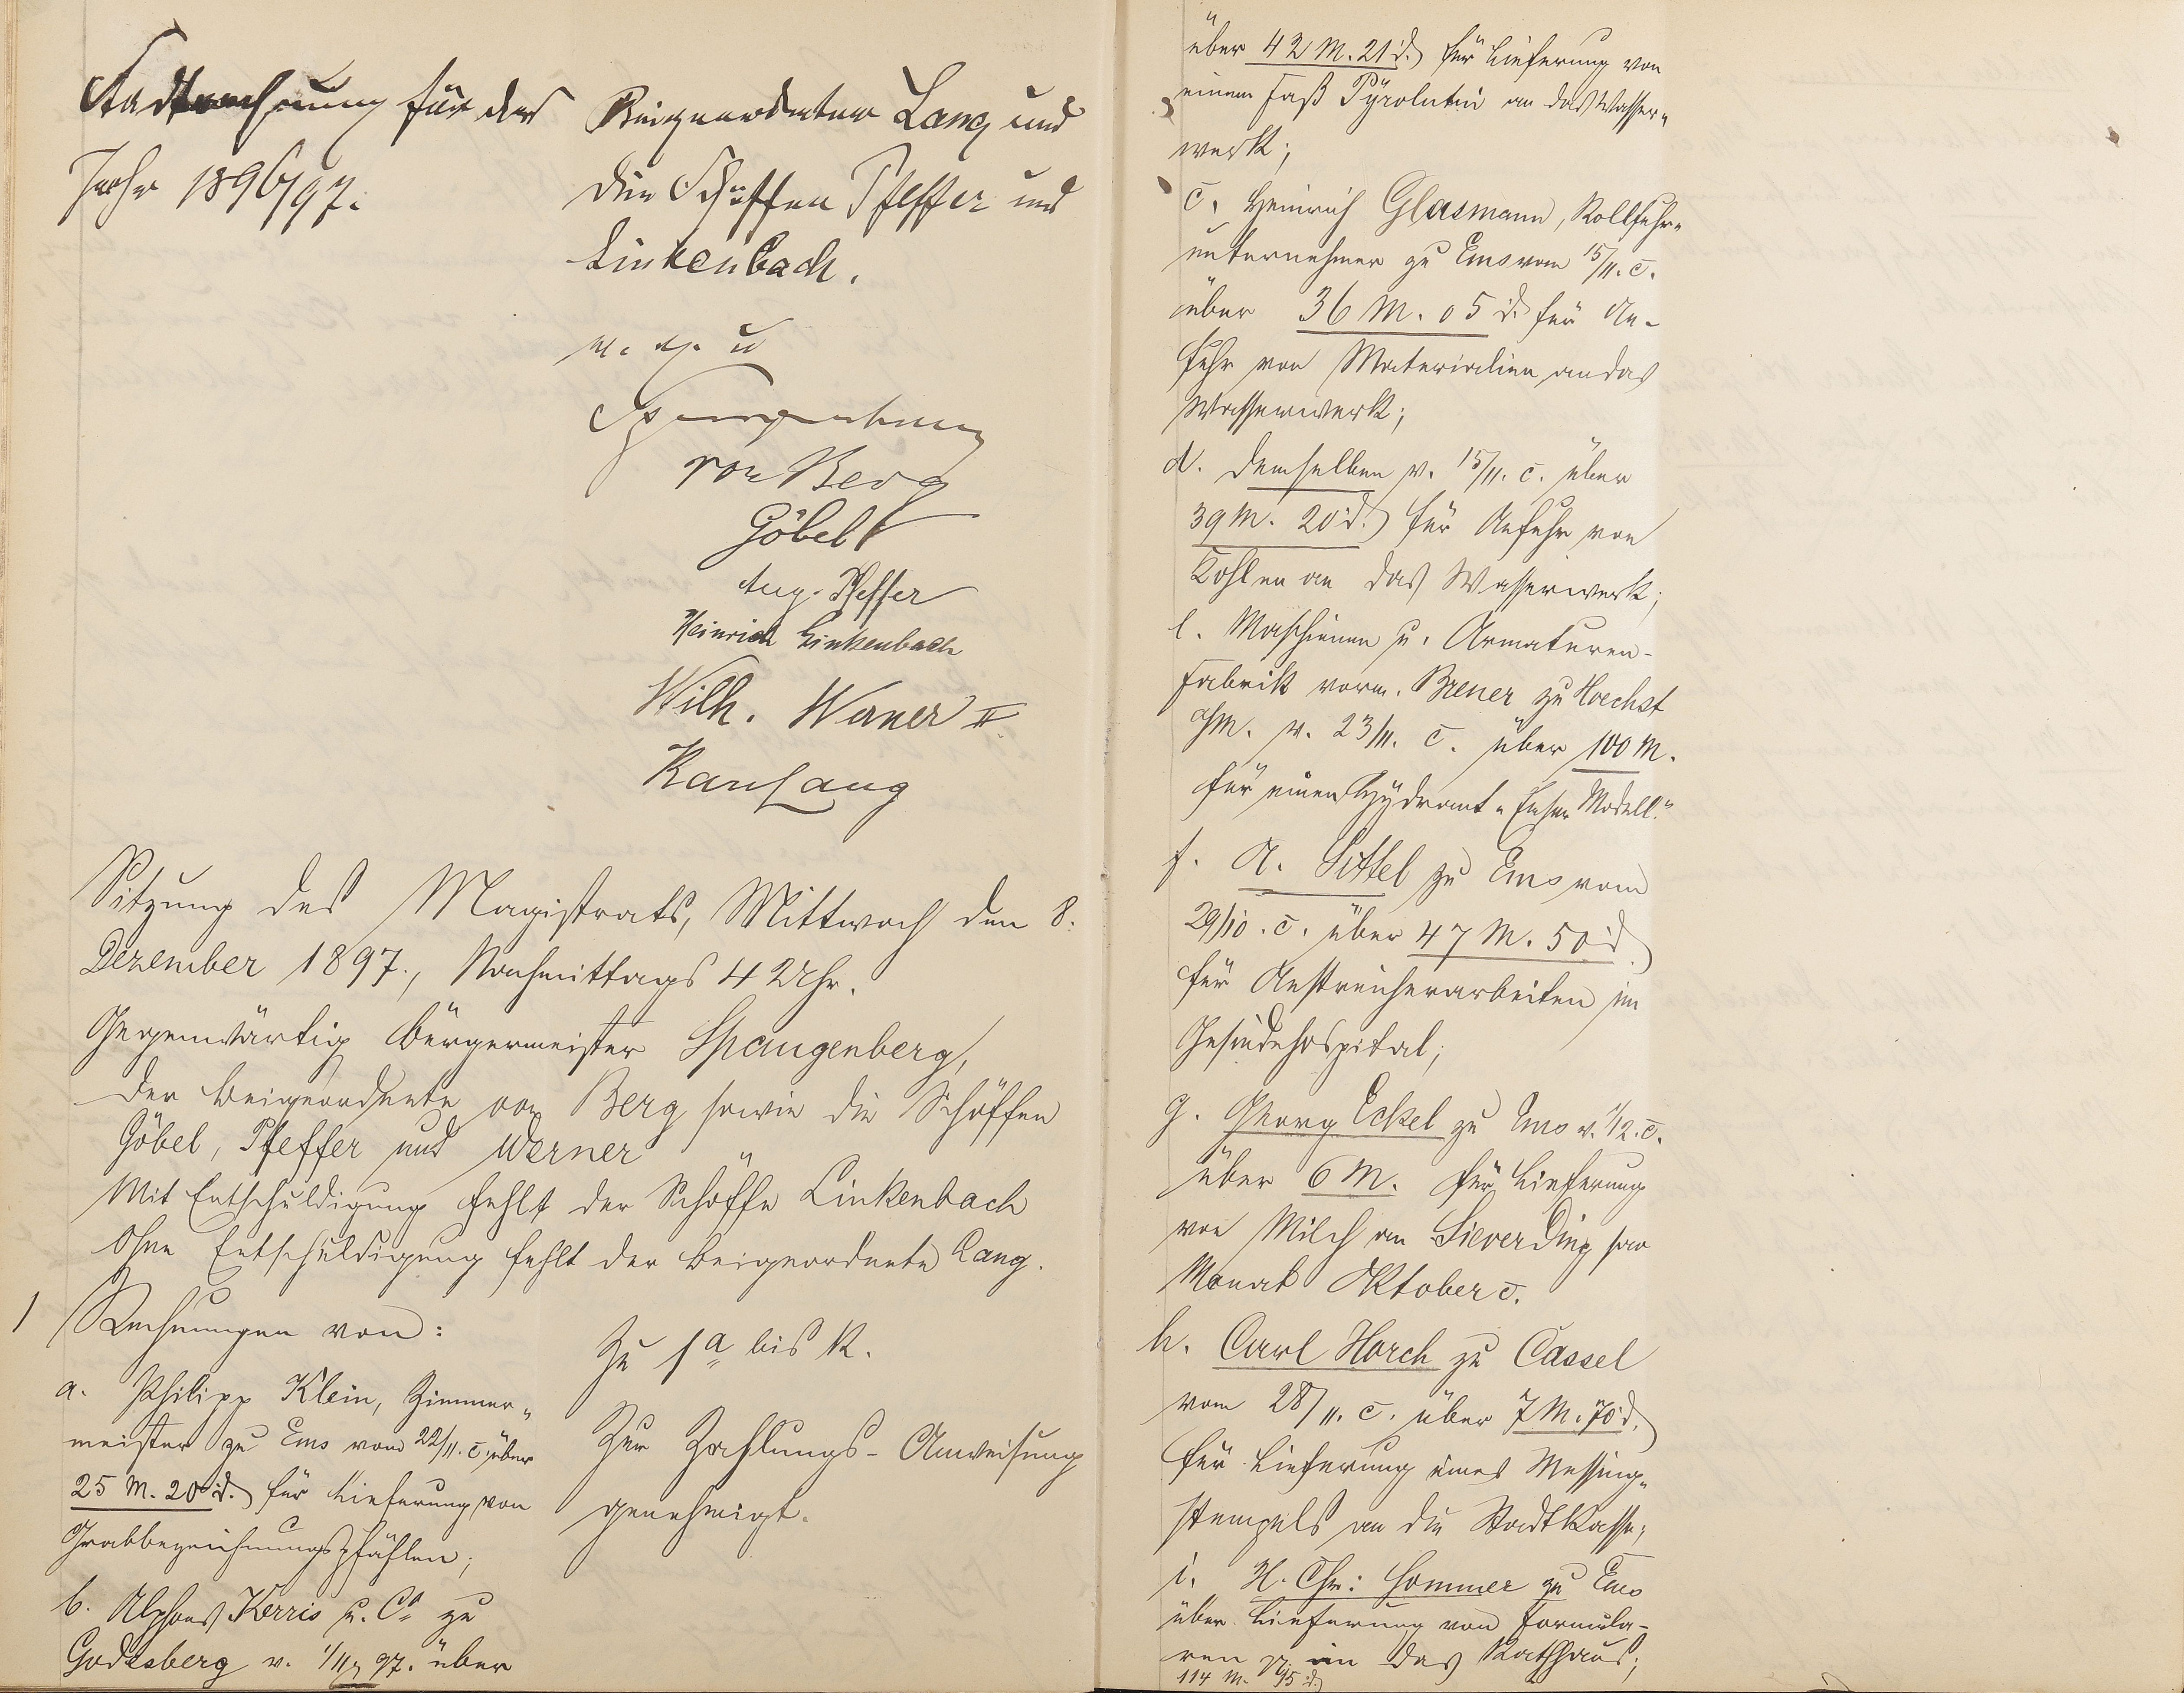 Stadtrechnung für das
Jahr 1896/97.
Beigeordneten Lang und
die Schöffen Pfeffer und
Linkenbach.
v. g. u
Spangenberg
von Berg
Göbel
Aug. Pfeffer
Heinrich Linkenbach
Wilh. Werner II
Karl Lang
Sitzung des Magistrats, Mittwoch den 8.
Dezember 1897., Nachmittags 4 Uhr.
Gegenwärtig Bürgermeister Spangenberg,
der Beigeordnete von Berg sowie die Schöffen
Göbel, Pfeffer und Werner
Mit Entschuldigung fehlt der Schöffe Linkenbach
Ohne Entschuldigung fehlt der Beigeordnete Lang.
1 Rechnungen von:
a. Philipp Klein, Zimmer-
meister zu Ems vom 22/11. c. über
25 M. 20 d. für Lieferung von
Grabbezeichnungspfählen;
b. Alphons Korris u. Co zu
Godesberg v. 1/11 97. über
Zu 1a bis k.
Zur Zahlungs-Anweisung
genehmigt.
über 42 M. 21 d. für Lieferung von
einem Faß Pyrolutin an das Wasser-
werk;
c. Heinrich Glasmann, Rollfuhr-
unternehmer zu Ems vom 15/11. c.
über 36 M. 05 d. für An-
fuhr von Materialien an das
Wasserwerk;
d. Demselben v. 15/11. c. über
39 M. 20 d. für Anfuhr von
Kohlen an das Wasserwerk;
e. Maschinen u. Armaturen-
Fabrik vorm. Breuer zu Hoechst
a/M. v. 23/11. c. über 100 M.
für einen Hydrant "Emser Modell."
f. A. Sittel zu Ems vom
29/10. c. über 47 M. 50 d.
für Anstreicherarbeiten im
Gesindehospital;
g. Georg Eckel zu Ems v. 1/12. c.
über 6 M. für Lieferung
von Milch an Sieverding pro
Monat Oktober c.
h. Carl Horch zu Cassel
vom 28/11. c. über 7 M. 70 d.
für Lieferung eines Messing-
stempels an die Stadtkasse;
i. H. Chr: Sommer zu Ems
über Lieferung von Formula-
ren in das Rathhaus;
114 M. 95 d.